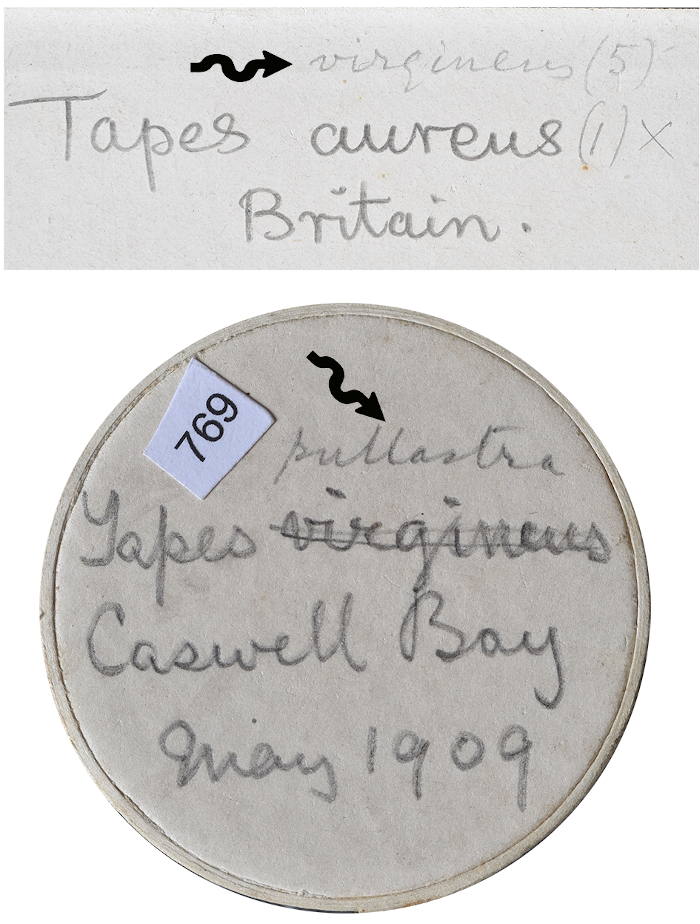 virgineus (5)
Tapes aureus (1) ×
Britain.
769
pullastra
Tapes virgineus
Caswell Bay
May 1909